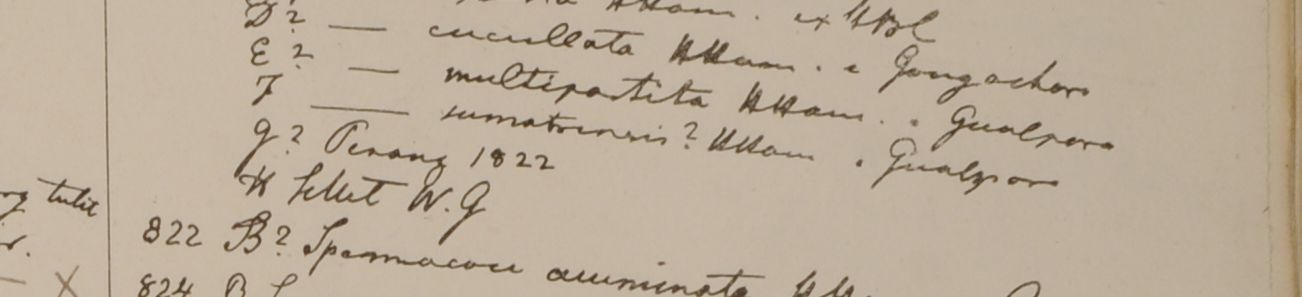 HHam. ex HBC
D? — cucullata HHam. e Gongachora
E? — multipartita HHam. . Gualpara
F — sumatrensis? HHam . Gualpara
G? Penang 1822
H Sillet W.G
ng tulit
822 B? Spermacoce acuminata HHam
824 B